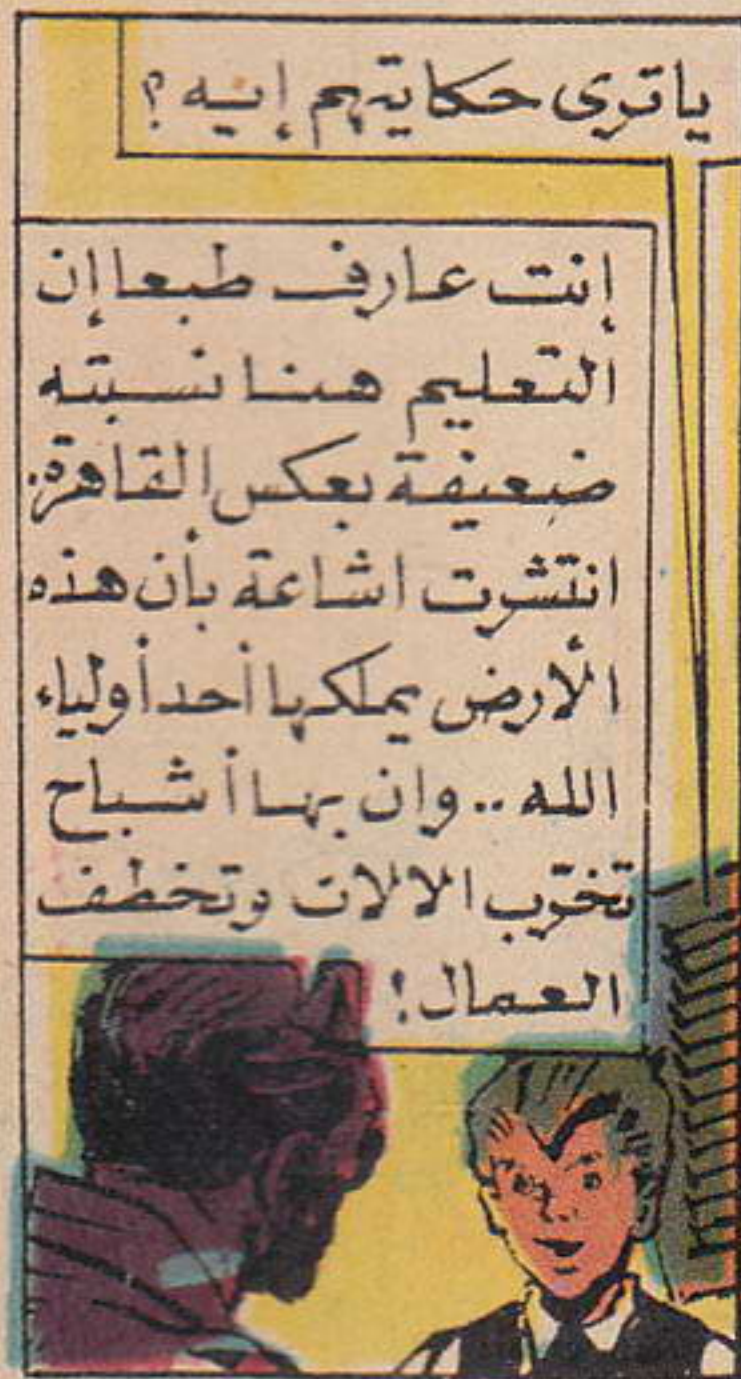 ياترى حكايتهم إيه؟
إنت عارف طبعا إن
التعليم هنا نسبته
ضعيفة بعكس القاهرة.
انتشرت اشاعة بأن هذه
الأرض يملكها أحد أولياء
الله .. وان بها أشباح
تخرّب الالات وتخطف
العمال!